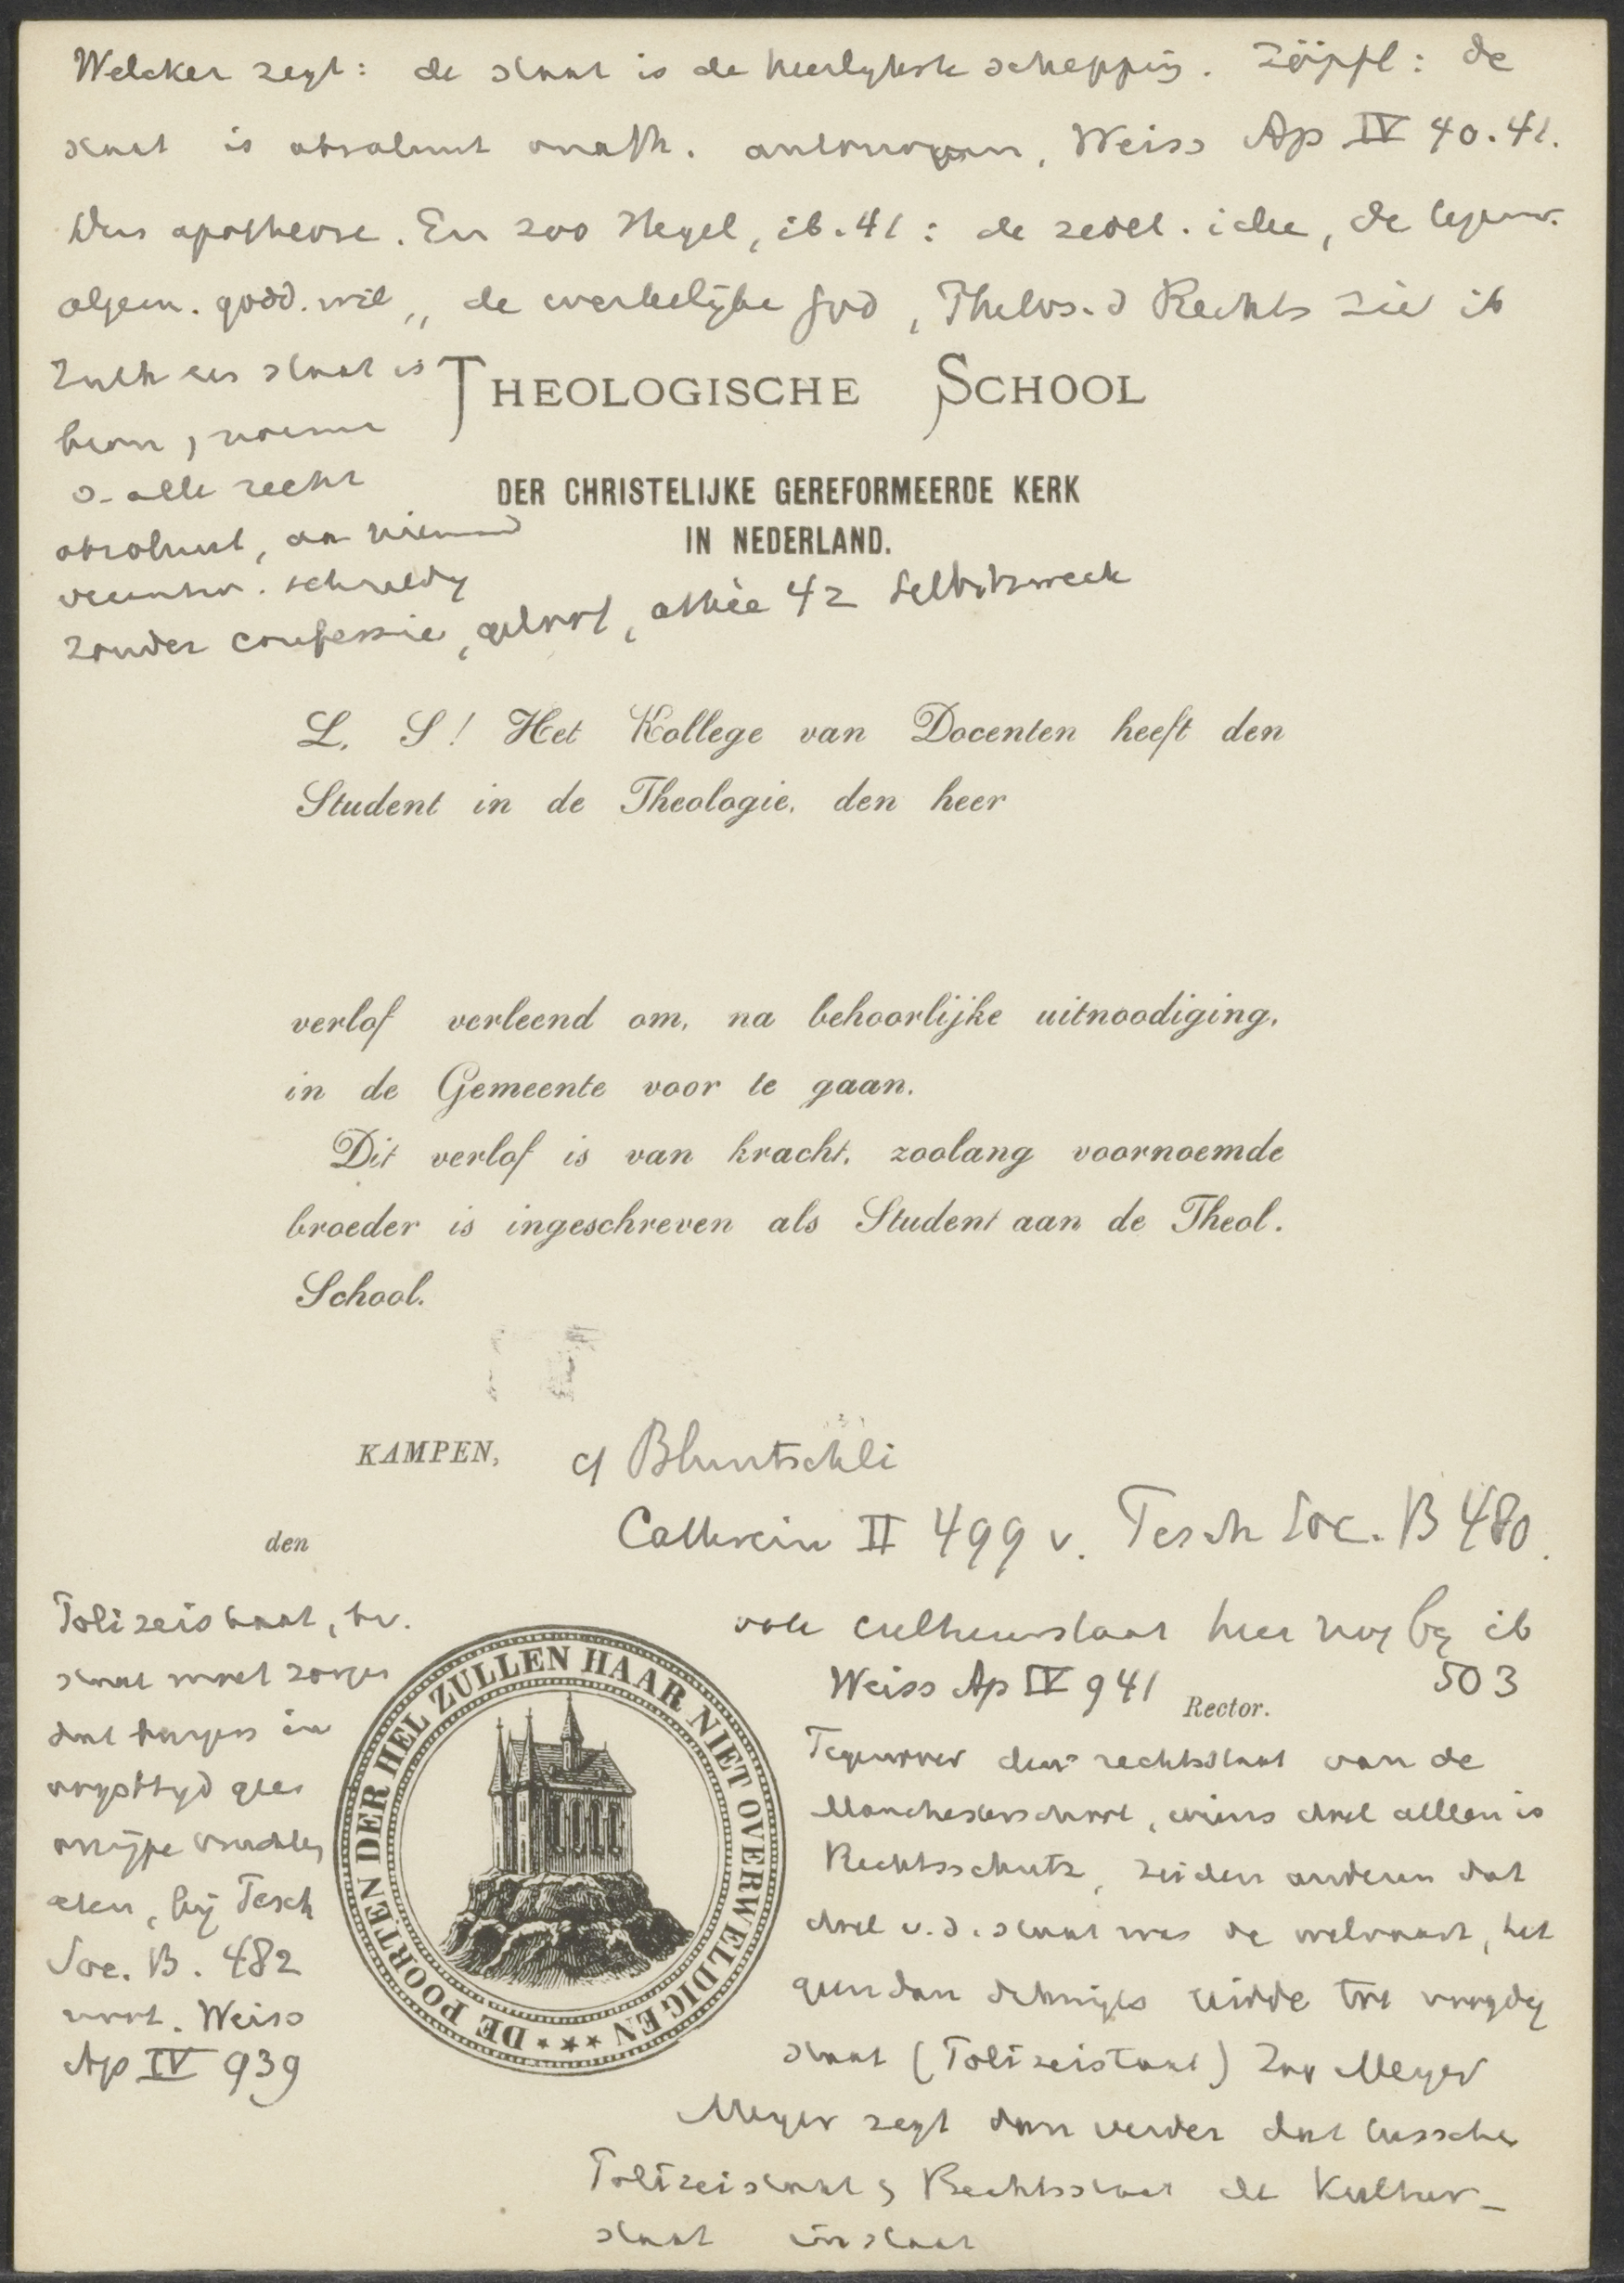 Welcker zegt: de staat is de heerlykste schepping. Zöpfl: de
staat is absoluut onafh. Weiss Ap IV 40.41.
Dus apotheose. En zoo Hegel, ib. 41: de zedel. idee, de
algem. godd. wil „ de werkelijke God, Philos. d Rechts zie ib
Zulk een staat is
bron, norm
v. alle recht
absoluut, aan niemand
verantw. schuldig
zonder confessie, geloof, athée 42 Selbstzweck
THEOLOGISCHE SCHOOL
DER CHRISTELIJKE GEREFORMEERDE KERK
IN NEDERLAND.
L. S! Het Kollege van Docenten heeft den
Student in de Theologie, den heer
verlof verleend om, na behoorlijke uitnoodiging,
in de Gemeente voor te gaan.
Dit verlof is van kracht, zoolang voornoemde
broeder is ingeschreven als Student aan de Theol.
School.
KAMPEN,
cf Bluntschli
den
Cathrein II 499 v. Pesch Soc. B 480.
over cultuurstaat hier nog by ib
503
Weiss Ap IV 941
Rector.
Polizeistaat, bv.
staat moet zorgen
dat burgers in
geen
onrijpe vruchten
eten, bij Pesch
Soc. B. 482
voort. Weiss
Ap IV 939
DE POORTEN DER HEL ZULLEN HAAR NIET OVERWELDIGEN
Tegenover den rechtsstaat van de
Manchesterschool, wiens doel alleen is
Rechtsschutz, zeiden anderen dat
doel v.d. staat was de welvaart, het
staat (Polizeistaat) Zoo Meyer
Meyer zegt dan verder dat tusschen
Polizeistaat & Rechtsstaat de Kultur-
staat in staat